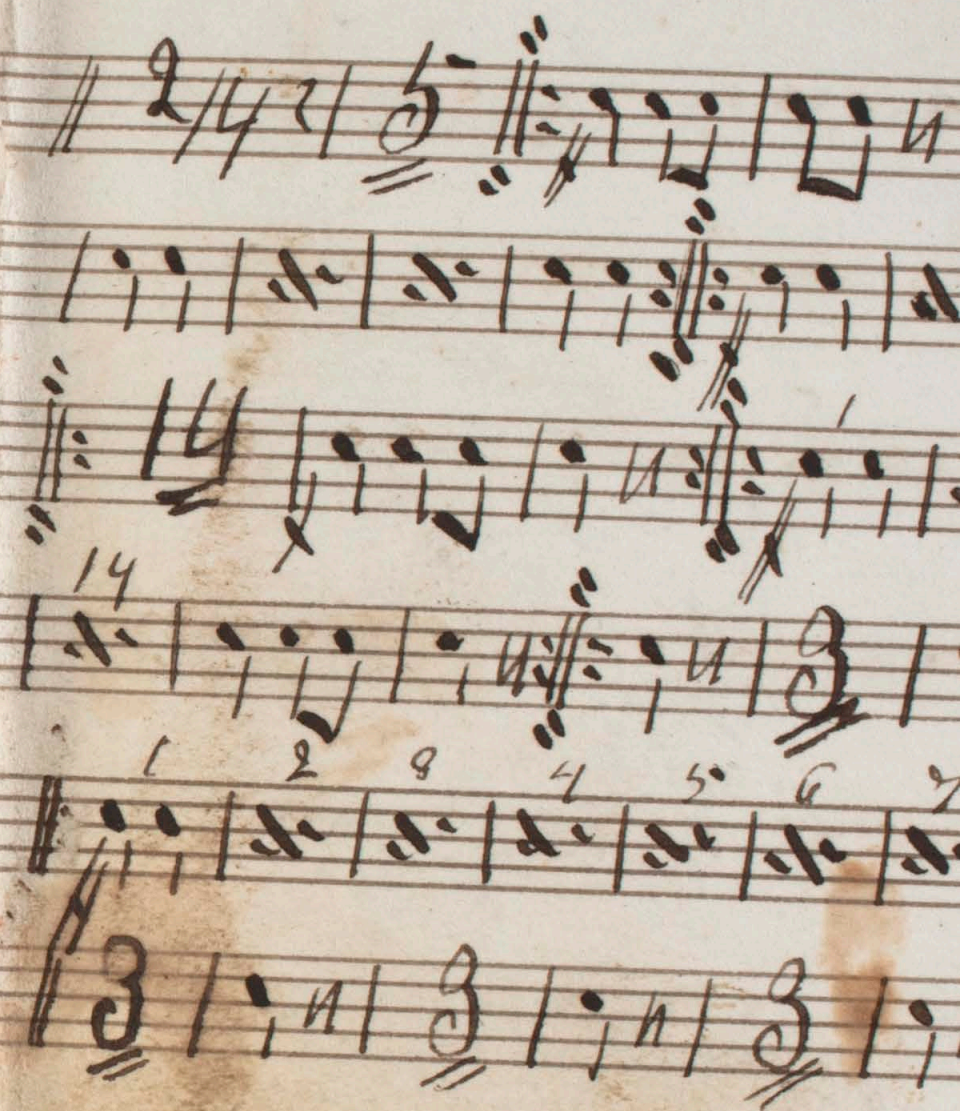 2/4 5
14 1
14 3
1 2 3 4 5 6 7
3 3 3